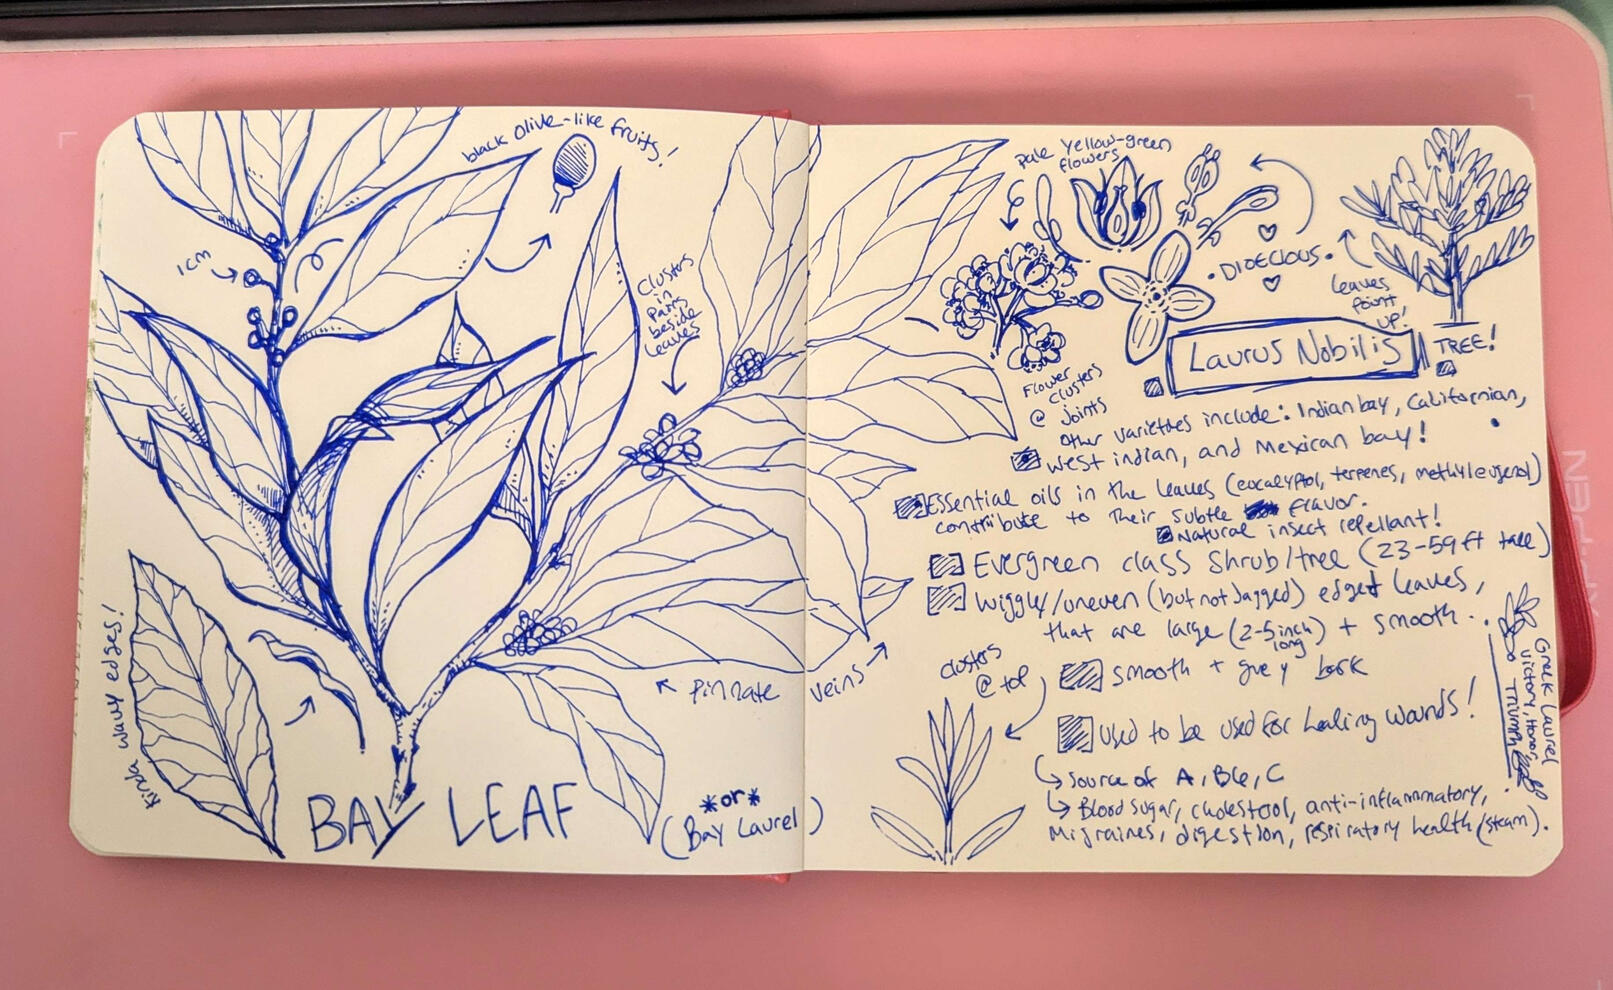 black olive-like fruits!
1cm
Clusters
in
pairs
beside
leaves
kinda wavy edges!
pinnate veins
BAY LEAF
*or*
(Bay Laurel)
pale yellow-green
flowers
DIOECIOUS
leaves
point
up!
TREE!
Laurus Nobilis
Flower
clusters
@ joints
Other varieties include: Indian bay, Californian,
West indian, and Mexican bay!
Essential oils in the leaves (eucalyptol, terpenes, methyleugenol)
contribute to their subtle flavor.
Natural insect repellant!
Evergreen class shrub/tree (23-59ft tall)
Wiggly/uneven (but not Jagged) edged leaves,
that are large (2-5 inch long) + smooth.
clusters
@ top
smooth + grey bark
Used to be used for healing wounds!
Source of A, B6, C
Blood sugar, cholesterol, anti-inflammatory,
Migraines, digestion, respiratory health (steam).
Greek Laurel
victory, Honor,
Triumph